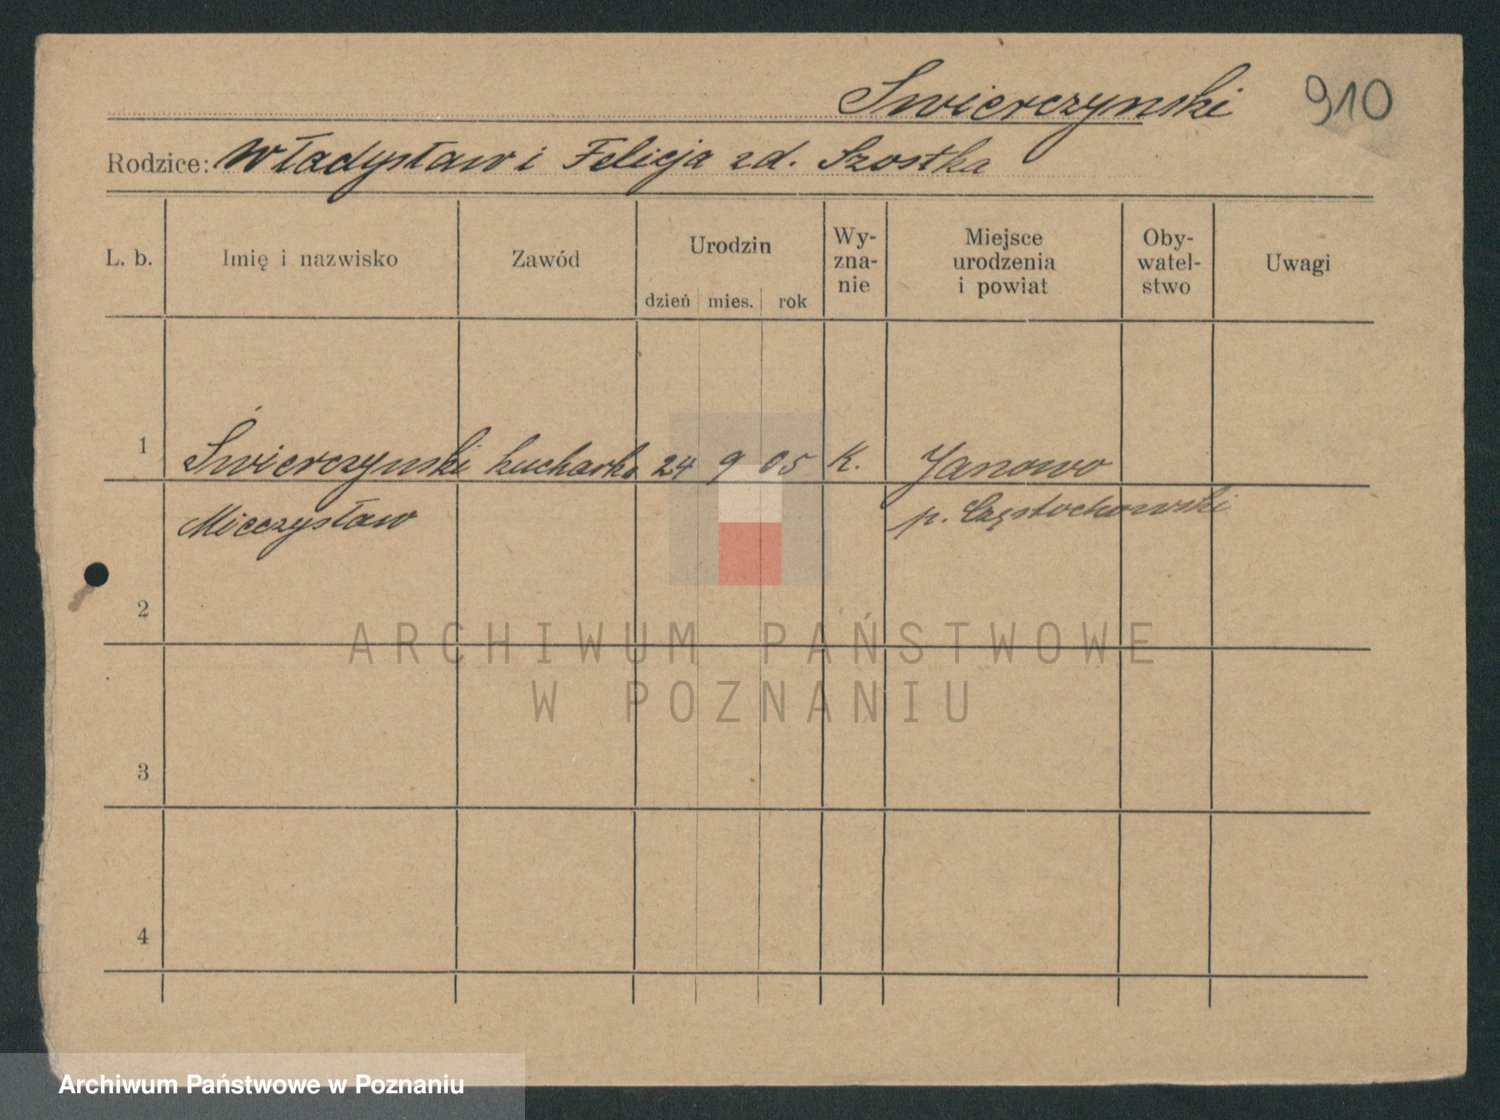 Swierczynski 910
Rodzice: Władysław i Felicja zd. Szostka
L. b. Imię i nazwisko Zawód Urodzin dzień mies. rok Wy-zna-nie Miejsce urodzenia i powiat Oby-watel-stwo Uwagi
1 Świerczynski kucharka 24 9 05 K. Janowo
Mieczysław p. Częstochowski
2
ARCHIWUM PAŃSTWOWE
W POZNANIU
3
4
Archiwum Państwowe w Poznaniu